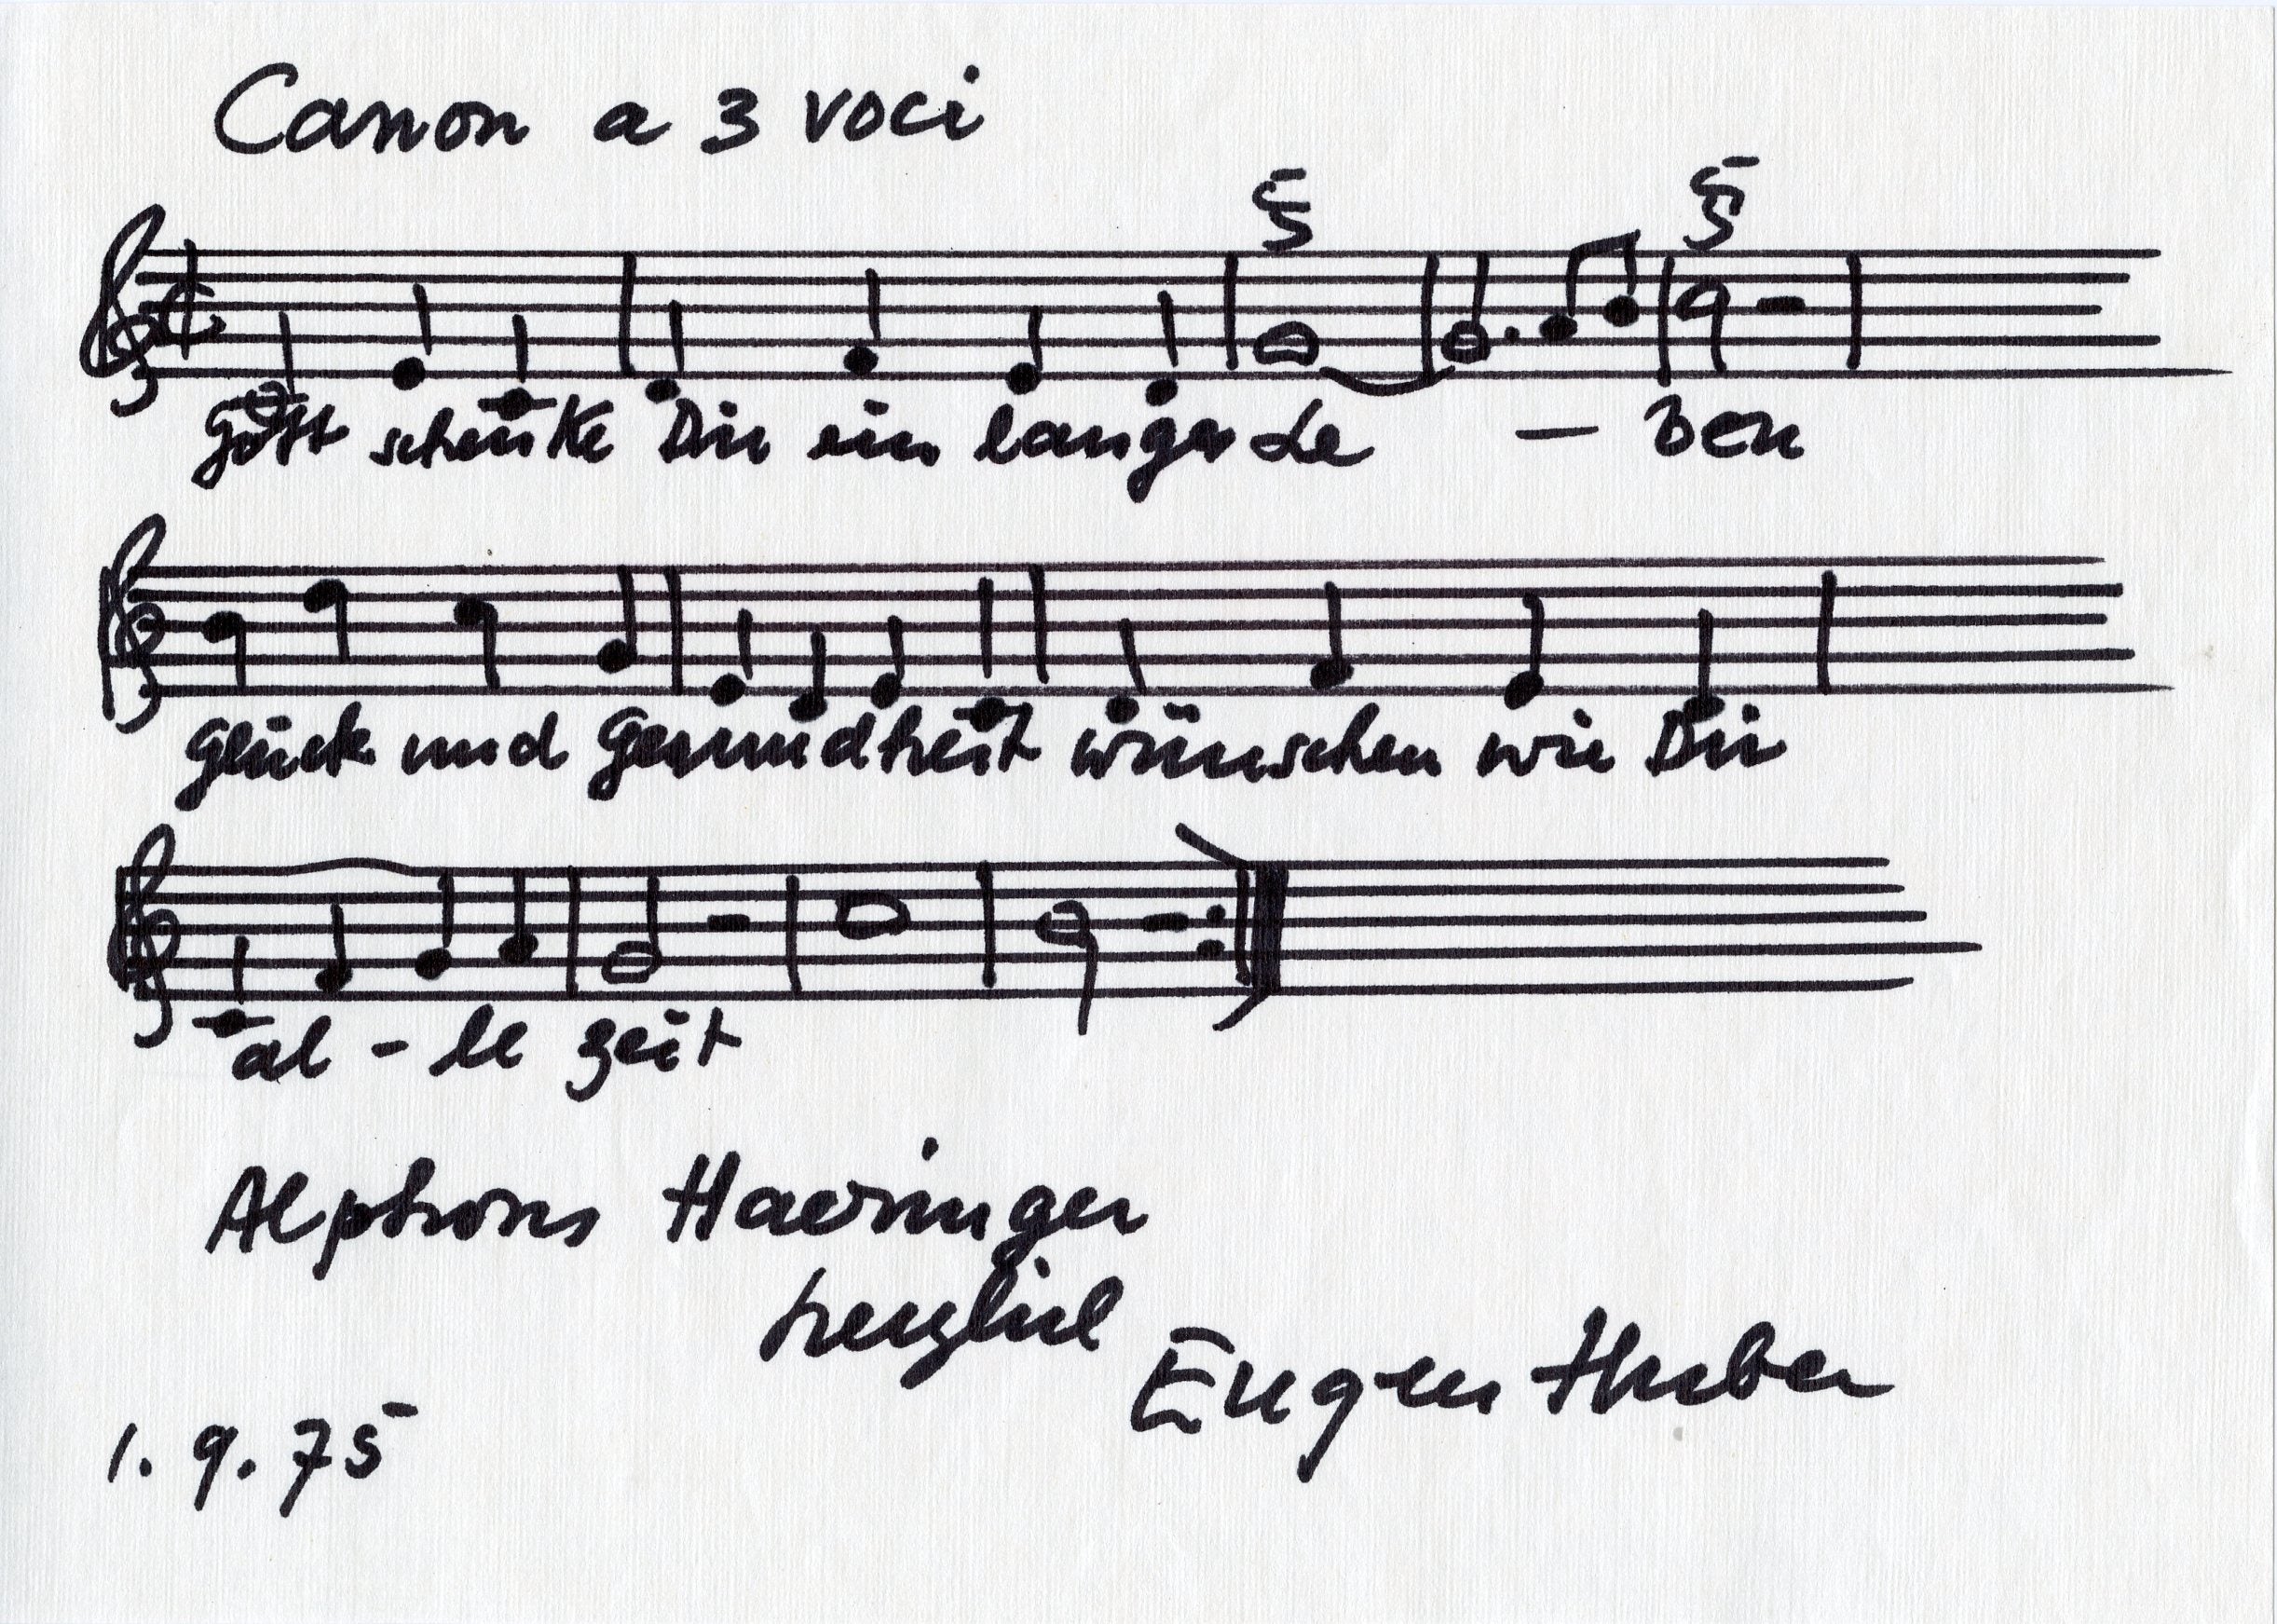 Canon a 3 voci
Gott schenke Dir ein langes Le – ben
Glück und Gesundheit wünschen wir Dir
al - le zeit
Alphons Haeringer
herzlich
Eugen Huber
1. 9. 75